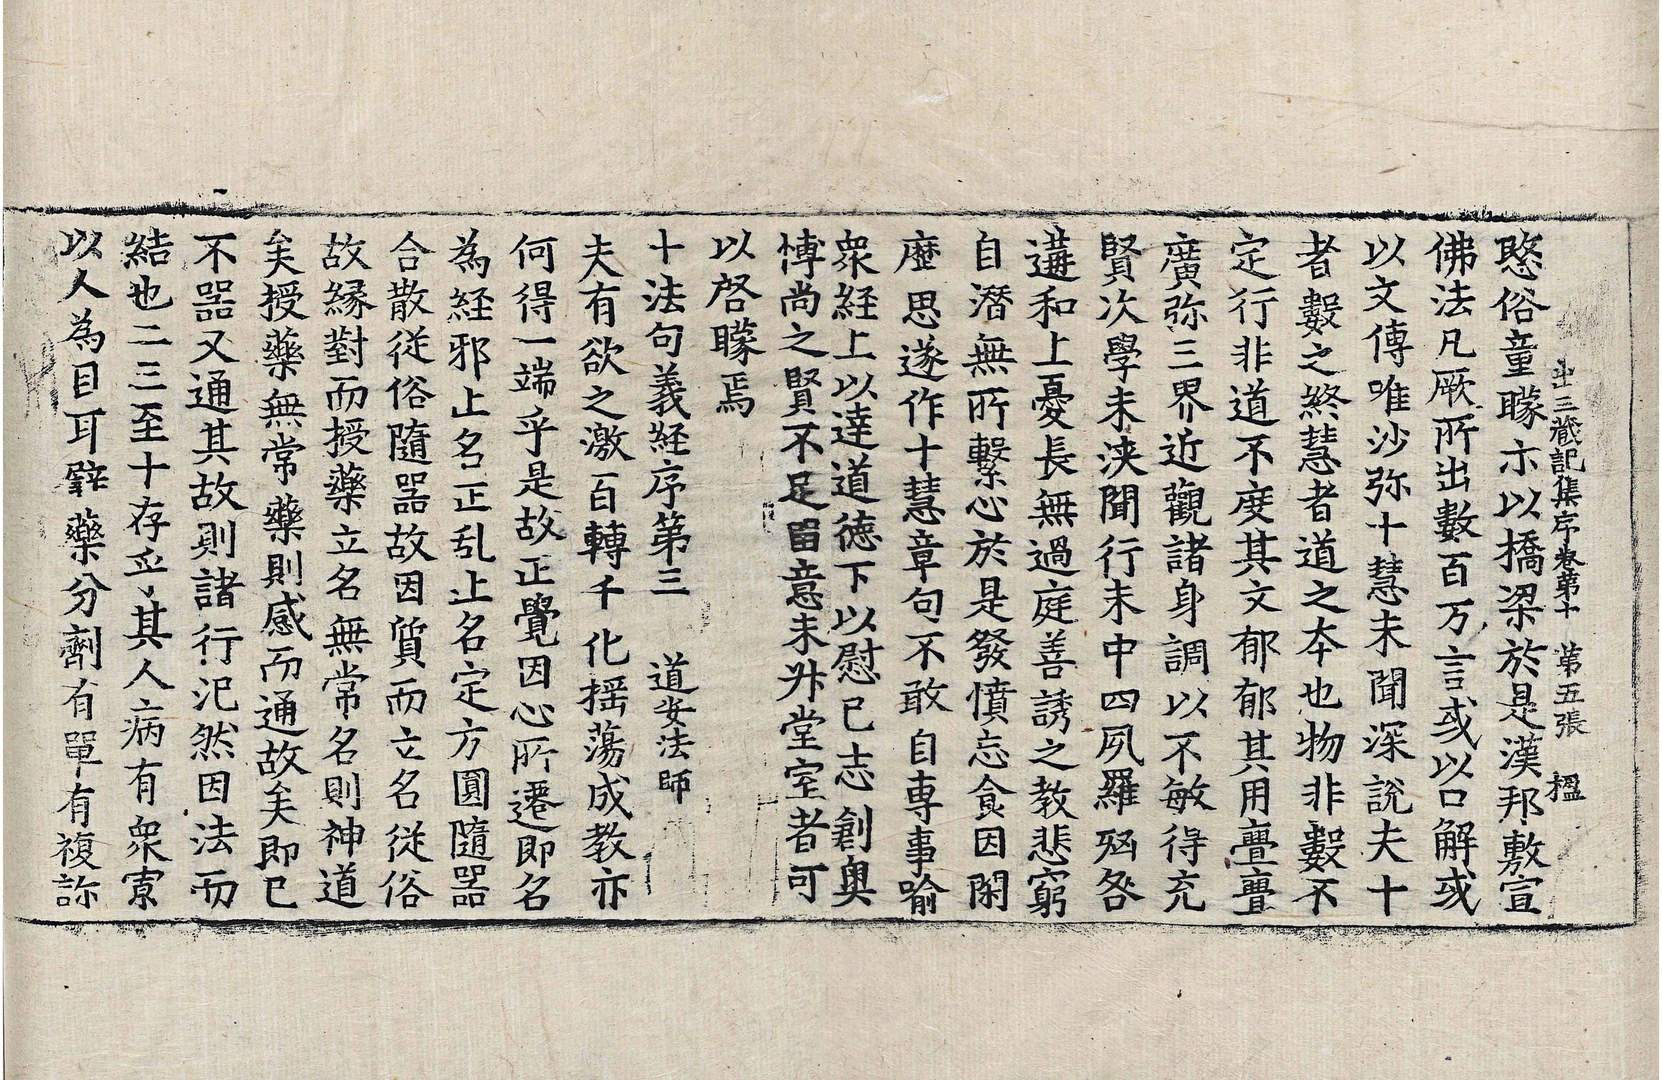 出三藏記集序卷第十　第五張　榲
愍俗童矇示以橋梁於是漢邦敷宣
佛法凡厥所出數百万言或以口解或
以文傳唯沙弥十慧未聞深說夫十
者數之終慧者道之本也物非數不
定行非道不度其文郁郁其用亹亹
廣弥三界近觀諸身調以不敏得充
賢次學未浹聞行未中四夙羅㐫咎
遘和上憂長無過庭善誘之教悲窮
自潛無所繫心於是發憤忘飡因閑
歷思遂作十慧章句不敢自専事喻
衆經上以達道德下以慰己志創奥
愽尚之賢不足留意未升堂室者可
以啓矇焉
十法句義經序第三　道安法師
夫有欲之激百轉千化揺蕩成教亦
何得一端乎是故正覺因心所遷即名
為經邪止名正乱止名定方圓隨器
合散從俗隨器故因質而立名從俗
故緣對而授藥立名無常名則神道
矣授藥無常藥則感而通故矣即已
不器又通其故則諸行汜然因法而
結也二三至十存乎其人病有衆寡
以人為目耳譬藥分劑有單有複訴